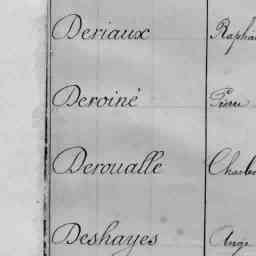 Deriaux Rapha
Deroiné Pierre
Deroualle Charles
Deshayes Ange